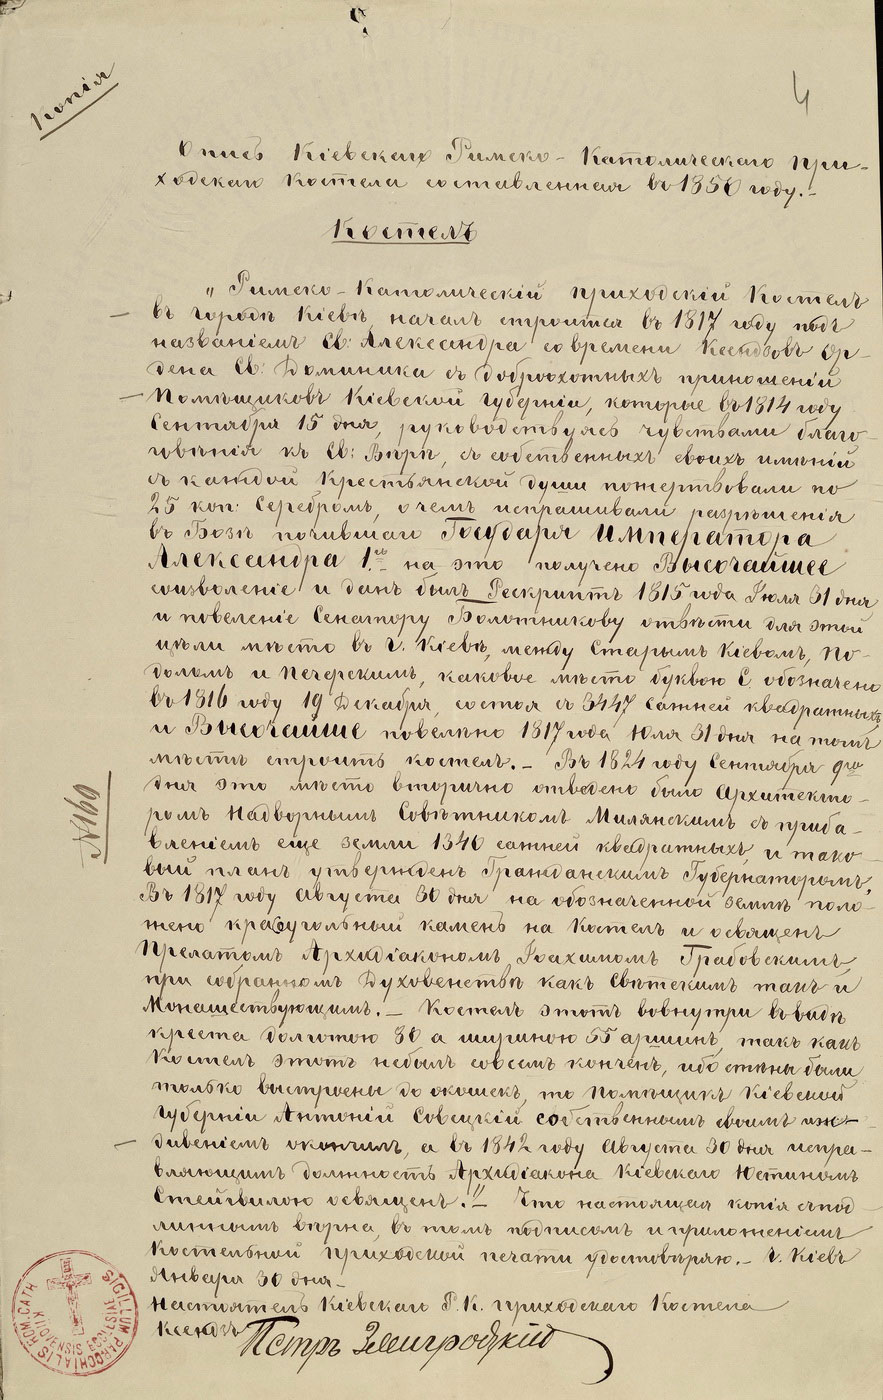 4
Копія
Опись Кіевскаго Римско-Католическаго при-
ходскаго костела составленная въ 1850 году.–
Костелъ
„Римско-Католическій приходскій Костелъ
въ городѣ Кіевѣ, началъ строится въ 1817 году подъ
названіемъ Св: Александра со времени Ксендзовъ Ор-
дена Св: Доминика съ доброохотныхъ приношеній
Помѣщиковъ Кіевской Губерніи, которые въ 1814 году
Сентября 15 дня, руководствуясь чувствами благо-
говѣнія къ Св: Вѣрѣ, съ собственныхъ своихъ имѣній
съ каждой Крестьянской души пожертвовали по
25 коп: Серебромъ, о чемъ испрашивали разрѣшенія
въ Бозѣ почившаго Государя Императора
Александра 1.го на это получено Высочайшее
соизволеніе и данъ былъ Рескриптъ 1815 года Іюля 31 дня
и повеленіе Сенатору Болотникову отвѣсти для этой
цѣли мѣсто въ г. Кіевѣ, между Старымъ Кіевомъ, По-
доломъ и Печерскимъ, каковое мѣсто буквою С обозначено
въ 1816 году 19 Декабря, состоя съ 3447 саженей квадратныхъ
и Высочайше повелѣно 1817 года Юля 31 дня на томъ
мѣстѣ строить костелъ.– Въ 1824 году Сентября 9го
дня это мѣсто вторично отведено было Архитекто-
ромъ Надворнымъ Совѣтникомъ Милянскимъ съ приба-
вленіемъ еще земли 1340 саженей квадратныхъ, и тако-
вый планъ утвержденъ Гражданскимъ Губернаторомъ,
Въ 1817 году Августа 30 дня на обозначенной землѣ поло-
жено краеугольный камень на Костелъ и освященъ
Прелатомъ Архидіакономъ Іоахимомъ Грабовскимъ,
при собранномъ Духовенствѣ какъ Свѣтскимъ такъ и
Монашествующимъ.– Костелъ этотъ вовнутри въ видѣ
креста долготою 30 а шириною 55 аршинъ, такъ какъ
Костелъ этотъ небылъ совсемъ конченъ, ибо стѣны были
только выстроены до окошекъ, то Помѣщикъ Кіевской
Губерніи Антоній Совецкій собственнымъ своимъ иж-
дивеніемъ окончилъ, а въ 1842 году Августа 30 дня испра-
вляющимъ должность Архидіакона Кіевскаго Юстиномъ
Стейгвилою освященъ."– Что настоящая копія съ под-
линнымъ вѣрна, въ томъ подписомъ и приложеніемъ
Костельной приходской печати удостовѣряю.– Г. Кіевъ
Января 30 дня–
Настоятель Кіевскаго Р.К. приходскаго Костела
Ксендзъ Петръ Змигродзкій
№ 160
SIGILLUM PAROCHIALIS ROM. CATH.
KIJOVIENSIS ECCLESIAE